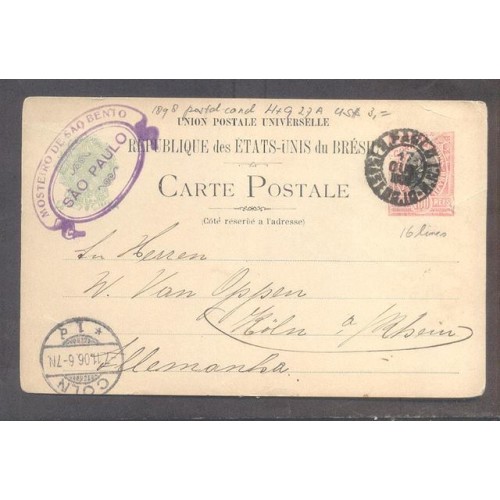 1898 postal card H+G 27A US$ 3,=
MOSTEIRO DE SÃO BENTO
SÃO PAULO
UNION POSTALE UNIVERSELLE
REPUBLIQUE DES ETATS-UNIS DU BRÉSIL
CARTE POSTALE
(Côté reservé a l'adresse)
17
16 lines
Herren
W. Van Oppen
Köln a/Rhein
Allemanha.
* 1 d
7.11.06.6-7N.
CÖLN